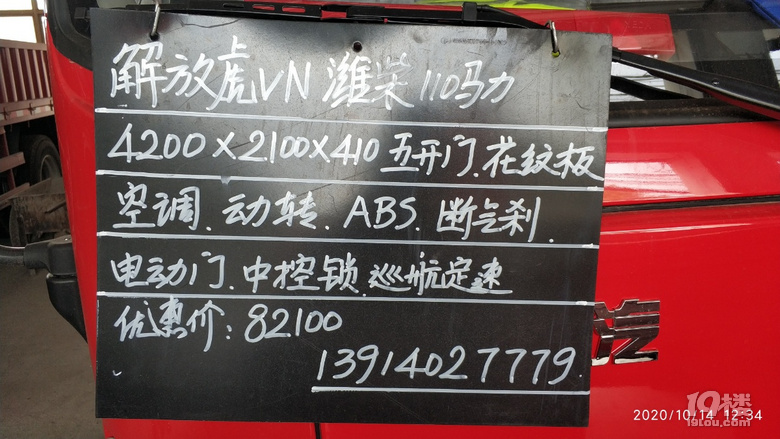 解放虎VN 潍柴110马力
4200×2100×410 五开门.花纹板
空调.动转.ABS.断气刹.
电动门.中控锁.巡航定速
优惠价:82100
13914027779
2020/10/14 12:34
19楼
19lou.com